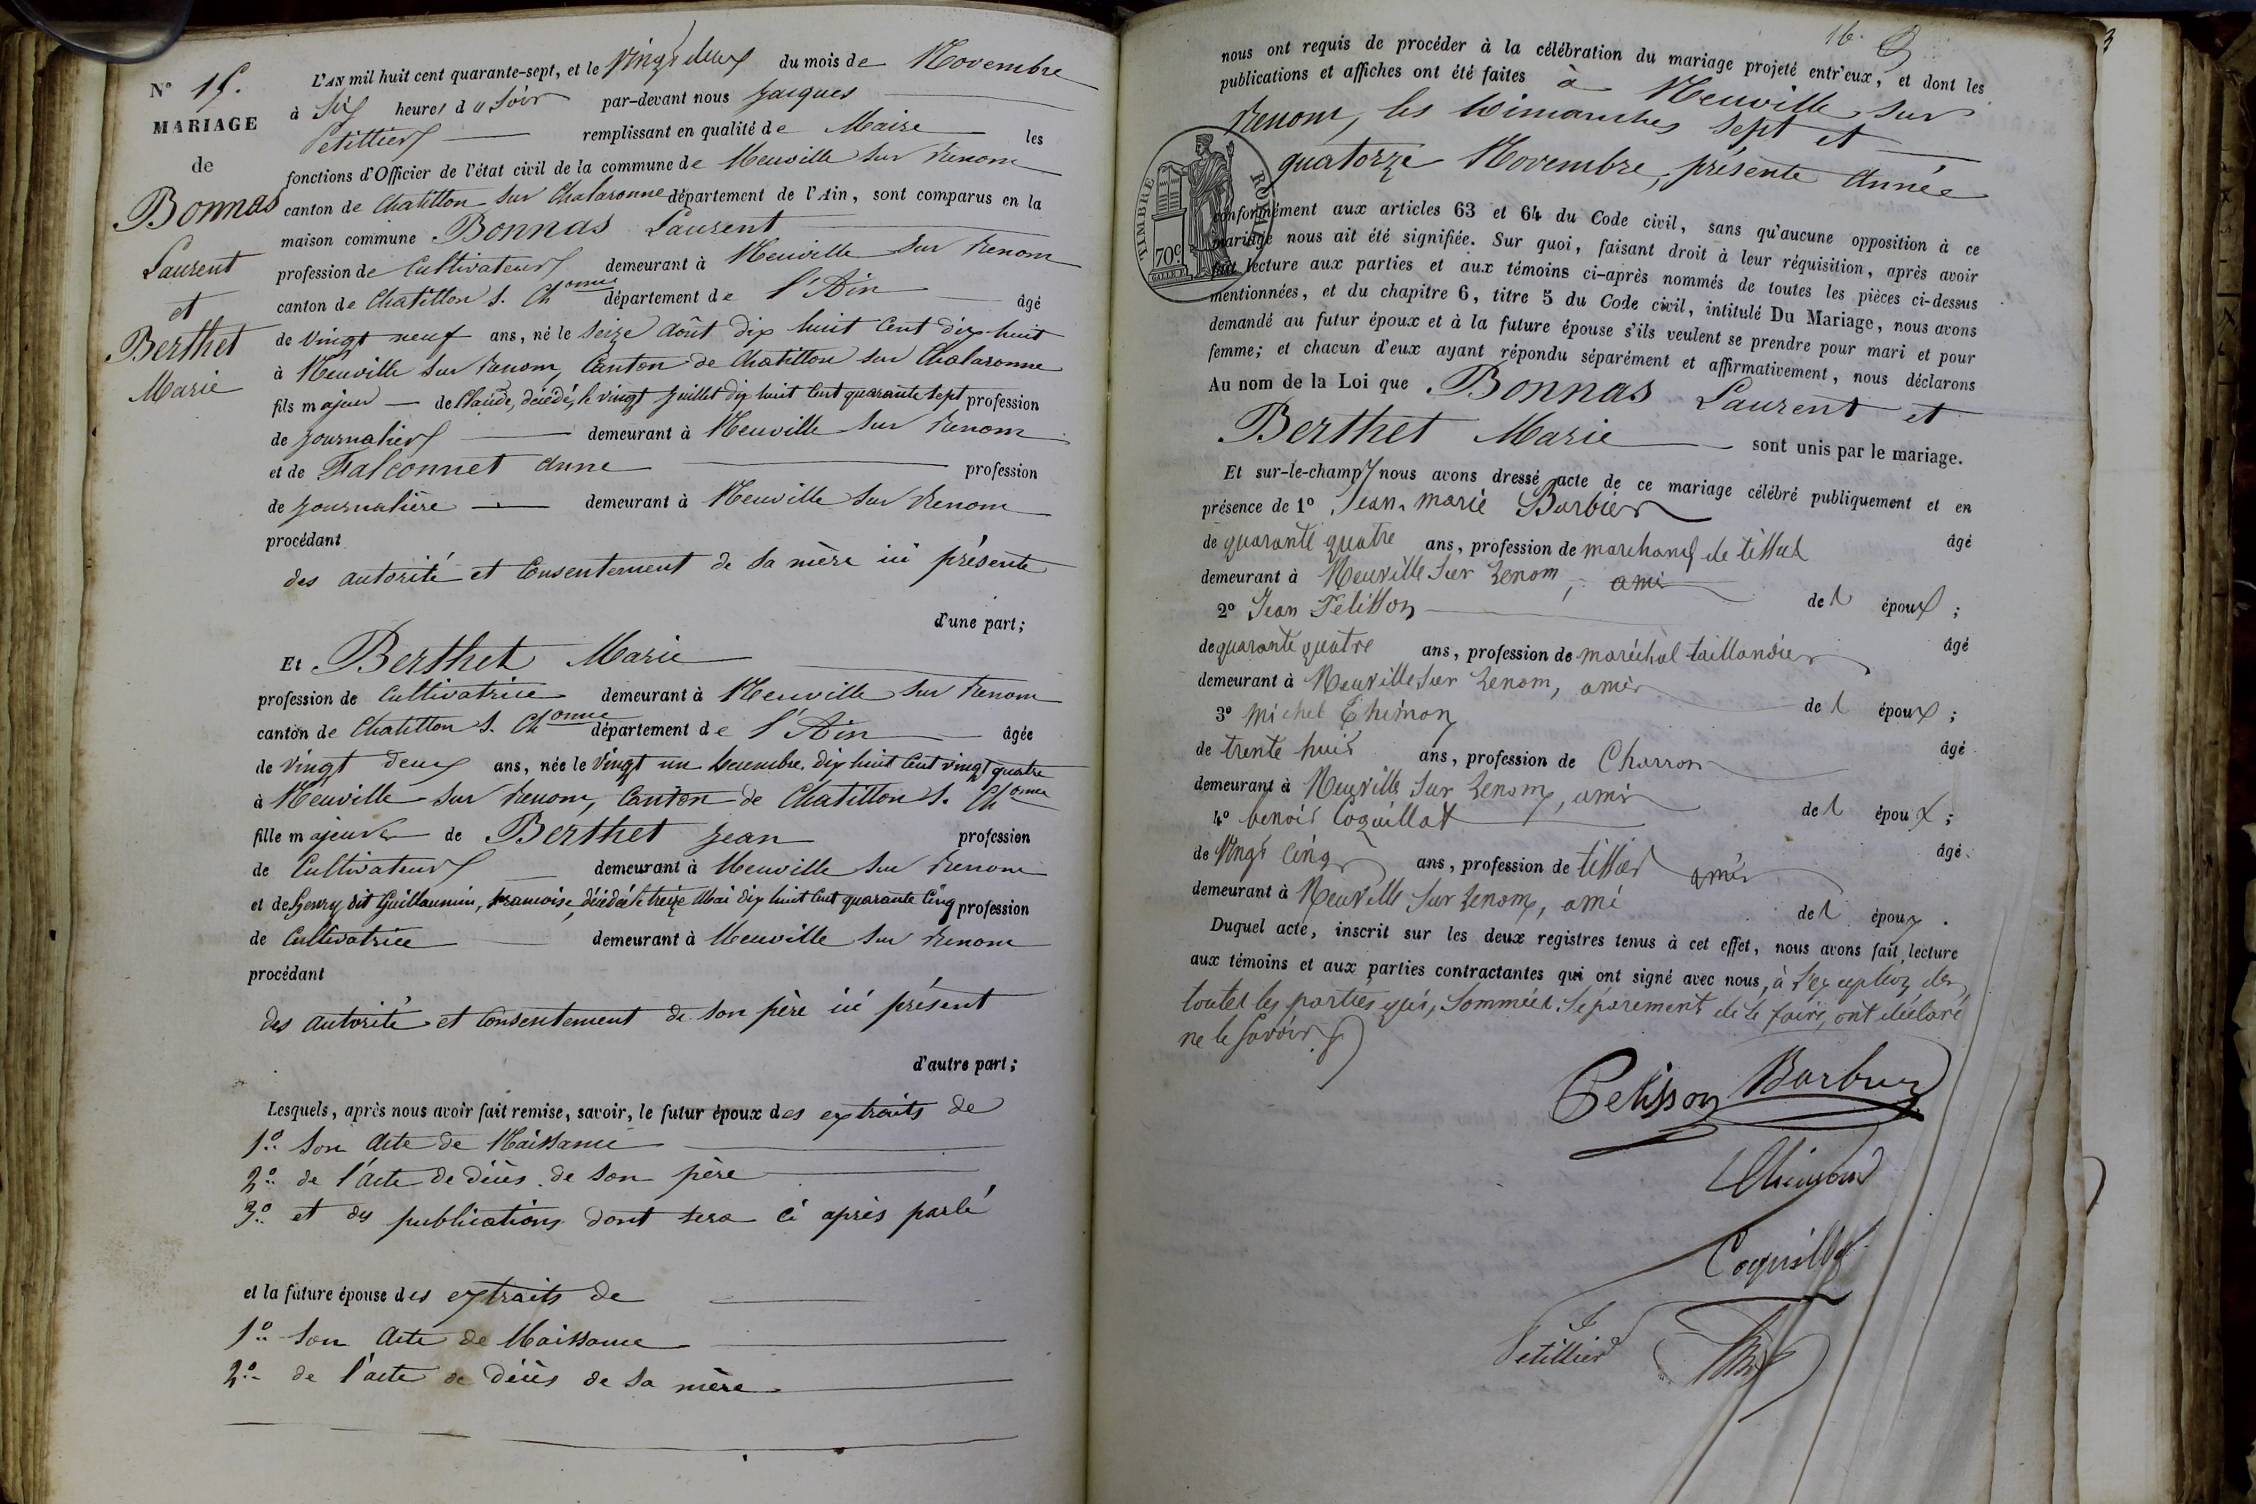 N° 15.
MARIAGE
de
Bonnas
Laurent
et
Berthet
Marie
L'AN mil huit cent quarante-sept, et le vingt deux du mois de Novembre
à Six heures du Soir par-devant nous Jacques
Petillier remplissant en qualité de Maire les
fonctions d'Officier de l'état civil de la commune de Neuville sur Renom
canton de Chatillon sur Chalaronne département de l'Ain, sont comparus en la
maison commune Bonnas Laurent
profession de Cultivateur demeurant à Neuville sur Renom
canton de Chatillon s. Chonne département de l'Ain âgé
de vingt neuf ans, né le seize août dix huit cent dix huit
à Neuville sur Renom, Canton de Chatillon sur Chalaronne
fils majeur de Claude, décédé, le vingt Juillet dix huit cent quarante sept profession
de journalier demeurant à Neuville sur Renom
et de Falconnet Anne profession
de journalière demeurant à Neuville sur Renom
procédant
des autorité et Consentement de sa mère ici présente
d'une part;
Et Berthet Marie
profession de Cultivatrice demeurant à Neuville sur Renom
canton de Chatillon s. Chonne département de l'Ain âgée
de vingt deux ans, née le vingt un Décembre dix huit cent vingt quatre
à Neuville sur Renom, Canton de Chatillon s. Chonne
fille majeure de Berthet Jean profession
de Cultivateur demeurant à Neuville sur Renom
et de Henry dit Guillaumin, francoise, décédée le treize Mai dix huit cent quarante cinq profession
de Cultivatrice demeurant à Neuville sur Renom
procédant
des autorité et Consentement de son père ici présent
d'autre part;
Lesquels, après nous avoir fait remise, savoir, le futur époux des extraits de
1° son Acte de Naissance
2° de l'acte de décès de son père
3° et des publications dont sera ci après parlé
et la future épouse des extraits de
1° son Acte de Naissance
2° de l'acte de décès de sa mère
16.
nous ont requis de procéder à la célébration du mariage projeté entr'eux, et dont les
publications et affiches ont été faites à Neuville sur
Renom, les Dimanches sept et
quatorze Novembre, présente année
TIMBRE ROYAL
70 c.
conformément aux articles 63 et 64 du Code civil, sans qu'aucune opposition à ce
mariage nous ait été signifiée. Sur quoi, faisant droit à leur réquisition, après avoir
fait lecture aux parties et aux témoins ci-après nommés de toutes les pièces ci-dessus
mentionnées, et du chapitre 6, titre 5 du Code civil, intitulé Du Mariage, nous avons
demandé au futur époux et à la future épouse s'ils veulent se prendre pour mari et pour
femme; et chacun d'eux ayant répondu séparément et affirmativement, nous déclarons
Au nom de la Loi que Bonnas Laurent et
Berthet Marie sont unis par le mariage.
Et sur-le-champ nous avons dressé acte de ce mariage célébré publiquement et en
présence de 1° Jean-marie Barbier âgé
de quarante quatre ans, profession de marchand de tissus
demeurant à Neuville sur Renom, ami de l époux;
2° Jean Pelisson âgé
de quarante quatre ans, profession de maréchal taillandier
demeurant à Neuville sur Renom, ami de l époux;
3° Michel Thimon âgé
de trente huit ans, profession de Charron
demeurant à Neuville sur Renom, ami de l époux;
4° benoit Coquillat âgé
de vingt cinq ans, profession de tissier ami
demeurant à Neuville sur Renom, ami de l époux.
Duquel acte, inscrit sur les deux registres tenus à cet effet, nous avons fait lecture
aux témoins et aux parties contractantes qui ont signé avec nous, à l'exception de
toutes les parties qui, Sommées Séparement de le faire, ont déclaré
ne le savoir
Pelisson Barbier
Coquillat
Petillier